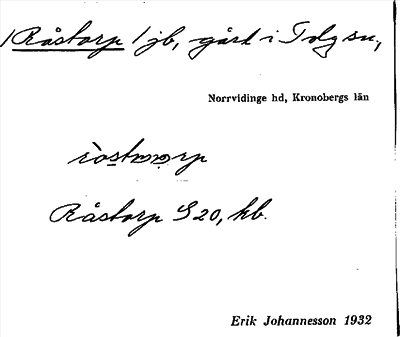 /Råstorp/ jb, gård i Tolg sn,
Norrvidinge hd, Kronobergs län
Råstorp S 20, hb.
Erik Johannesson 1932